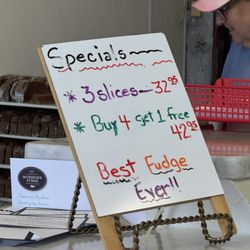 Specials
* 3 slices - 32.95
* Buy 4 get 1 free
42.95
Best Fudge
Ever!!